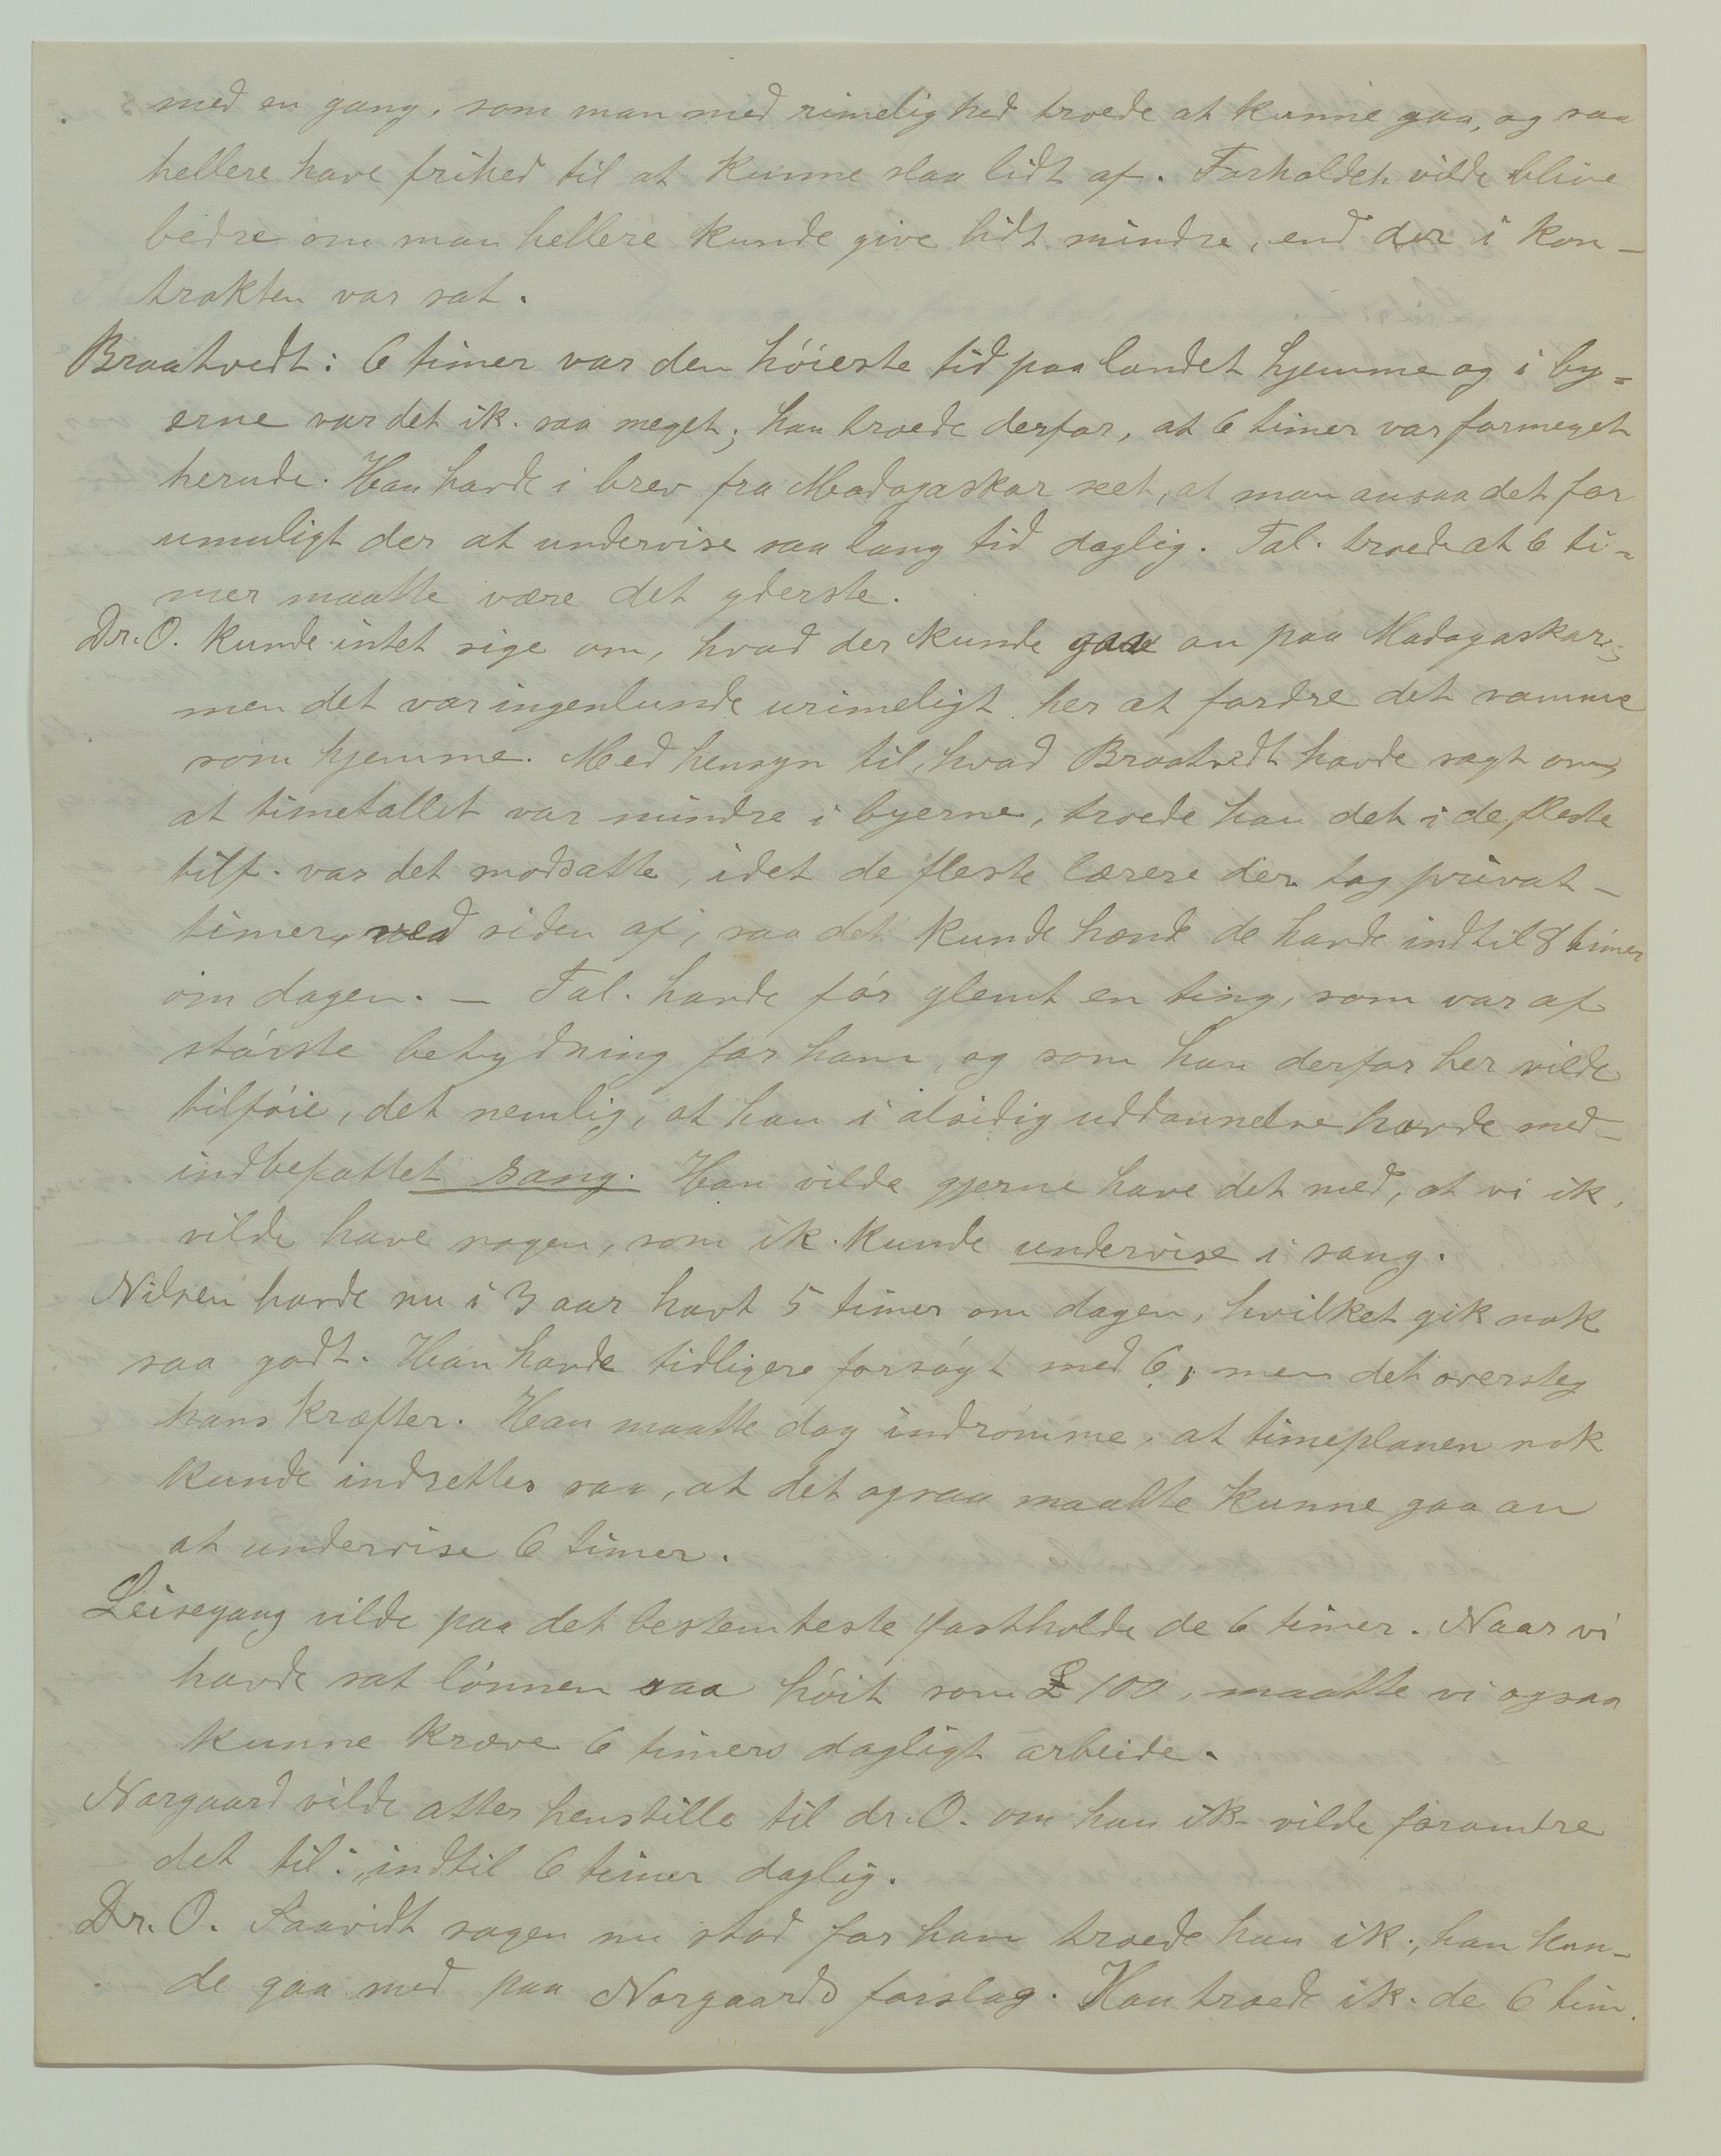 med en gang, som man med rimelighed troede at kunne gaa, og saa
hellere have frihed til at kunne slaa lidt af. Forholdet vilde blive
bedre om man hellere kunde give lidt mindre, end der i kon-
trakten var sat.
Braatvedt: 6 timer var den höieste tid paa landet hjemme og i by-
erne var det ik. saa meget; han troede derfor, at 6 timer var formeget
herude. Han havde i brev fra Madagaskar seet, at man ansaa det for
umuligt der at undervise saa lang tid daglig. Tal. troede at 6 ti-
mer maatte være det yderste.
Dr. O. kunde intet sige om, hvad der kunde gaa an paa Madagaskar;
men det var ingenlunde urimeligt her at fordre det samme
som hjemme. Med hensyn til, hvad Braatvedt havde sagt om,
at timetallet var mindre i byerne, troede han det i de fleste
tilf. var det modsatte, idet de fleste lærere der tog privat-
timer, ved siden af, saa det kunde hænde de havde indtil 8 timer
om dagen. — Tal. havde för glemt en ting, som var af
störste betydning for ham, og som han derfor her vilde
tilföie, det nemlig, at han i alsidig uddannelse havde med-
indbefattet sang. Han vilde gjerne have det med, at vi ik.
vilde have nogen, som ik. kunde undervise i sang.
Nilsen havde nu i 3 aar havt 5 timer om dagen, hvilket gik nok
saa godt. Han havde tidligere forsögt med 6, men det oversteg
hans kræfter. Han maatte dog indrömme, at timeplanen nok
kunde indrettes saa, at det ogsaa maatte kunne gaa an
at undervise 6 timer.
Leisegang vilde paa det bestemteste fastholde de 6 timer. Naar vi
havde sat lönnen saa höit som £ 100, maatte vi ogsaa
kunne kræve 6 timers dagligt arbeide.
Norgaard vilde atter henstille til dr. O. om han ik. vilde forandre
det til: „indtil 6 timer daglig.
Dr. O. Saavidt sagen nu stod for ham troede han ik., han kun-
de gaa med paa Norgaards forslag. Han troede ik. de 6 tim.